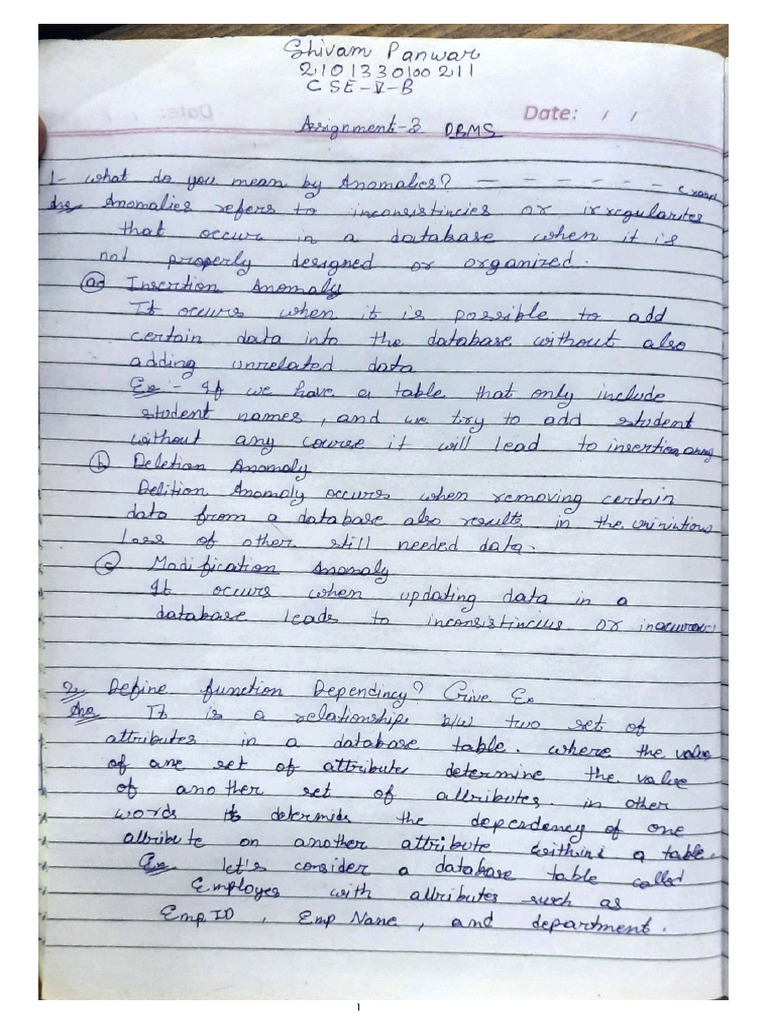 Shivam Panwar
2101330100211
CSE-V-B
Date: / /
Assignment-3 DBMS
1- what do you mean by Anomalies? - - - - - - -
Ans Anomalies refers to inconsistincies or irregularites
that occurs in a database when it is
not properly designed or organized.
(a) Insertion Anomaly
It occurs when it is possible to add
certain data into the database without also
adding unrelated data
Ex:- If we have a table that only include
student names, and we try to add student
without any course it will lead to insertion
(b) Deletion Anomaly
Delition Anomaly occurs when removing certain
data from a database also results in the
loss of other still needed data.
(c) Modification Anomaly
It occurs when updating data in a
database leads to inconsistincies or
2. Define function Dependincy? Give Ex
Ans It is a relationship b/w two set of
attributes in a database table. where the value
of one set of attribute determine the value
of another set of attributes. in other
words it determids the dependency of one
attribute on another attribute within a table.
Ex let's consider a database table called
Employes with attributes such as
Emp ID, Emp Name, and department.
1